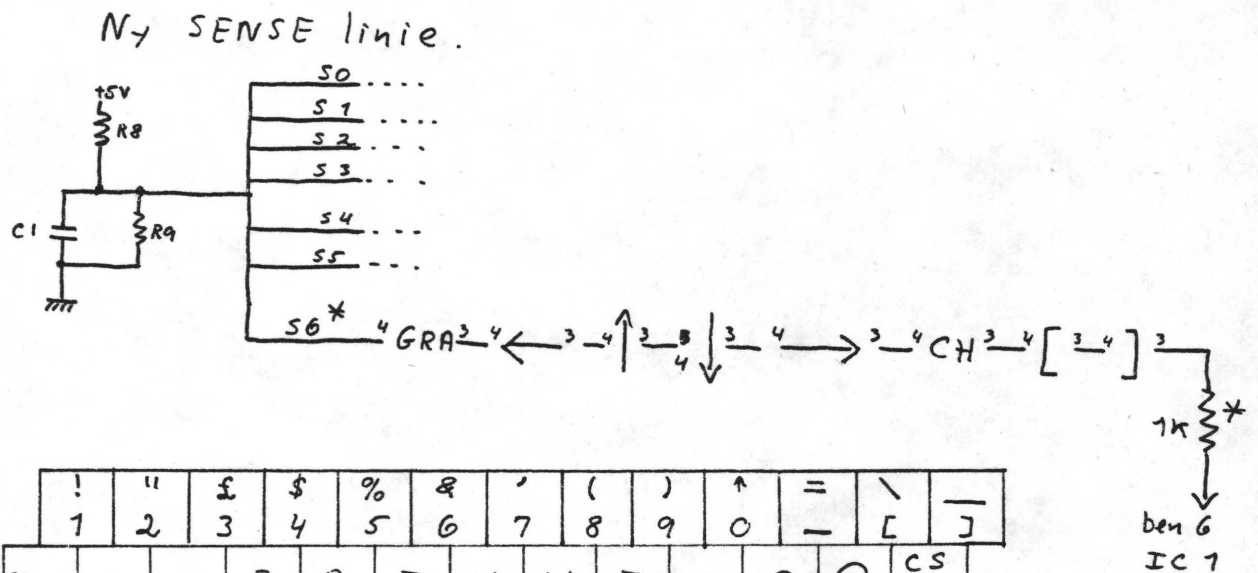 Ny SENSE linie.
+5V
R8
C1
R9
S0
S1
S2
S3
S4
S5
S6*
4 GRA 3 4 ← 3 4 ↑ 3 3 4 ↓ 3 4 → 3 4 CH 3 4 [ 3 4 ] 3
1K *
ben 6
IC 1
! " £ $ % & ' ( ) ↑ = \ _
1 2 3 4 5 6 7 8 9 0 - [ ]
CS